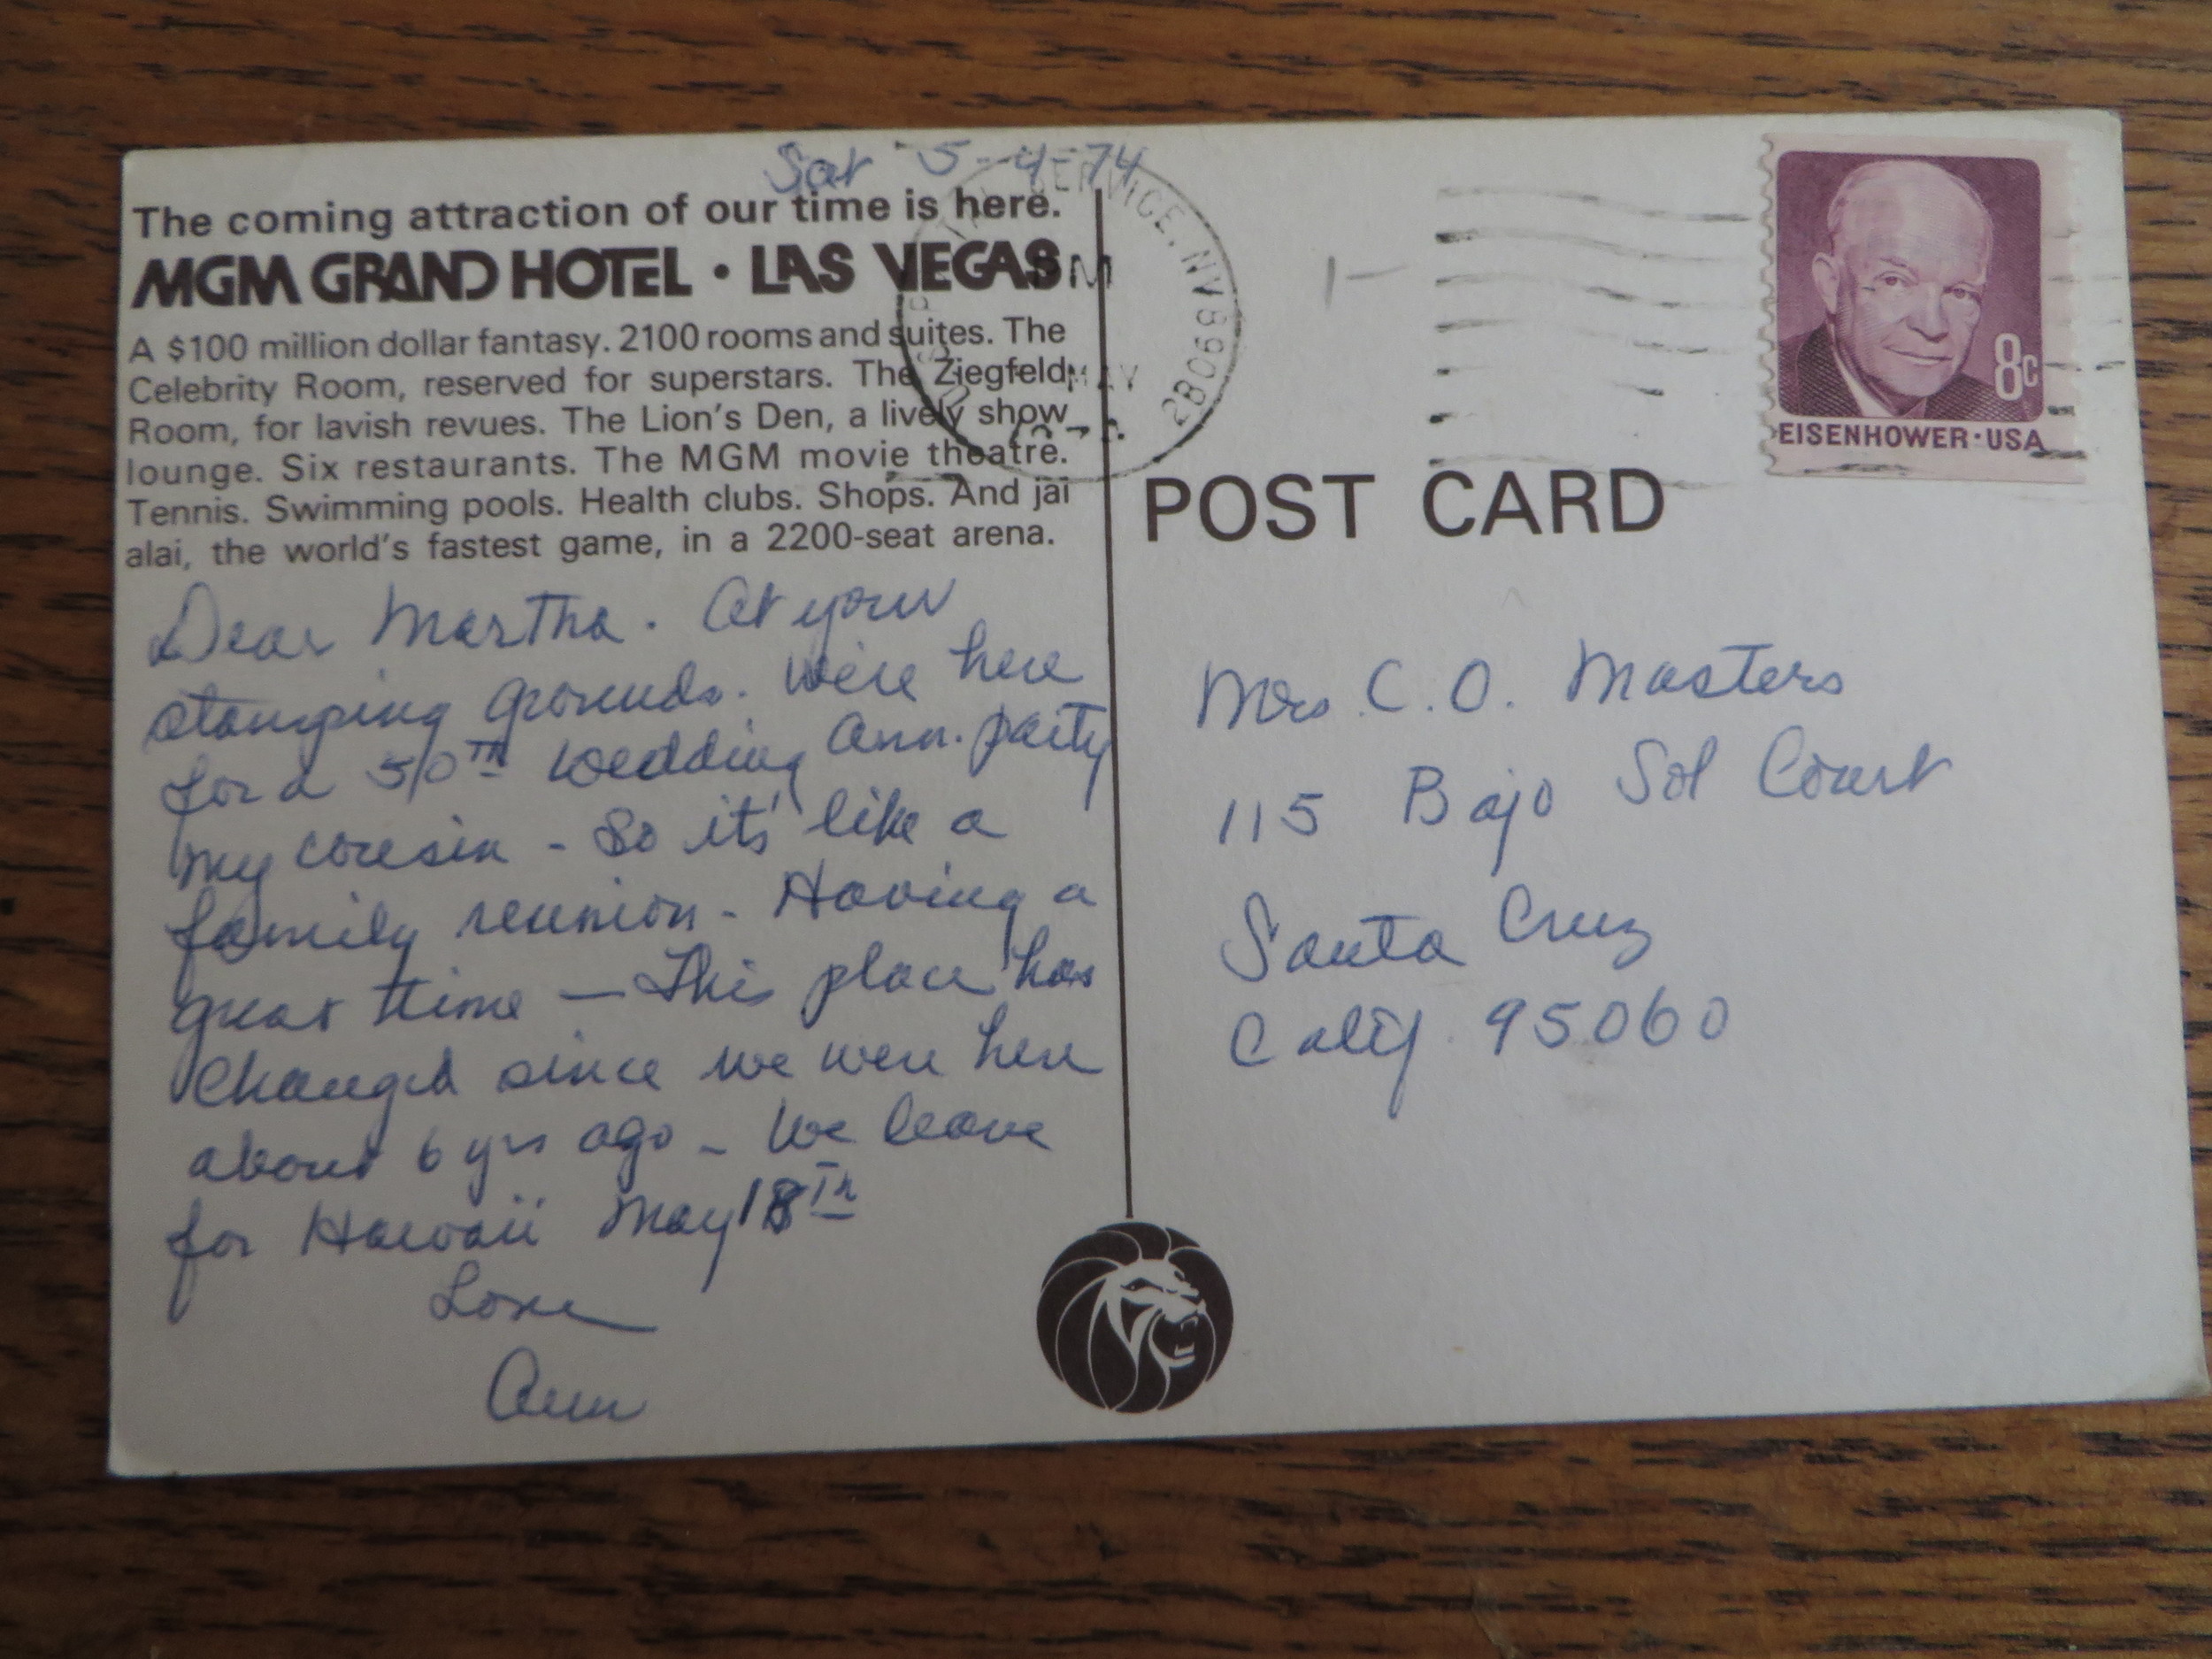 Sat 5-4-74
The coming attraction of our time is here.
MGM GRAND HOTEL · LAS VEGAS
A $100 million dollar fantasy. 2100 rooms and suites. The
Celebrity Room, reserved for superstars. The Ziegfeld
Room, for lavish revues. The Lion's Den, a lively show
lounge. Six restaurants. The MGM movie theatre.
Tennis. Swimming pools. Health clubs. Shops. And jai
alai, the world's fastest game, in a 2200-seat arena.
Dear Martha. At your
stamping grounds. We're here
for a 50TH Wedding Ann. party
my cousin - So it's like a
family reunion - Having a
great time — This place has
changed since we were here
about 6 yrs ago - We leave
for Hawaii May 18Th
Love
Ann
SERVICE, NV 89082
M
MAY
EISENHOWER · USA
8c
POST CARD
Mrs. C. O. Masters
115 Bajo Sol Court
Santa Cruz
Calif. 95060